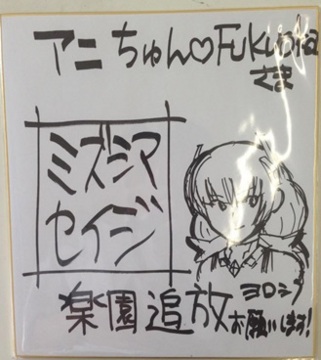 アニちゅん♡Fukuoka
さま
ミズシマ
セイジ
楽園追放
ヨロシク
お願いします!